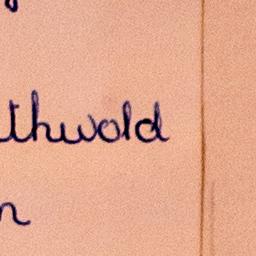 thwold
n